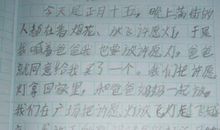 今天是正月十五,晚上满街的
人都在看烟花,放飞许愿灯,于是
我喊着爸爸我也要放许愿灯,爸爸
就同意给我买了一个。我们把许愿
灯拿回家里,和爸爸妈妈一起
我们在广场把许愿灯放飞